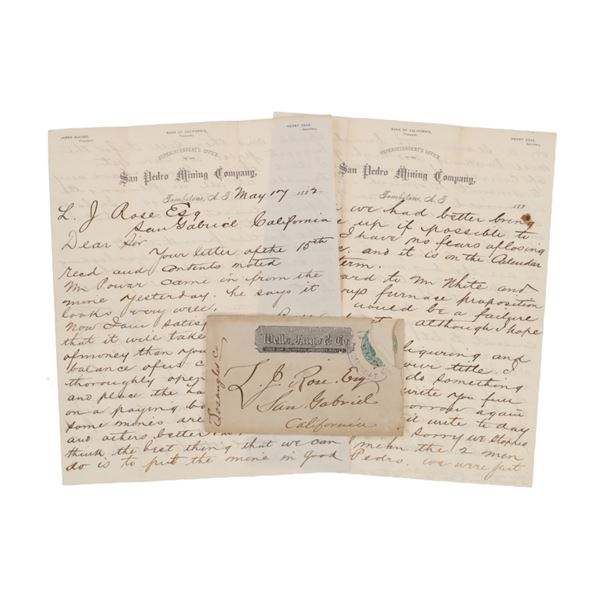 BANK OF CALIFORNIA,
Treasurer.
HENRY DEAS,
Secretary.
President.
SUPERINTENDENT'S OFFICE
OF THE
San Pedro Mining Company,
Tombstone, A. T. May 17 1882
L. J. Rose Esq
San Gabriel California
Dear Sir
Your letter of the 15th
read and contents noted
Mr Power came in from the
mine yesterday. he says it
looks very well.
Now I am satis
that it will take
of money than you
balance of
thoroughly open
and place the
on a paying b
some mines are
and others better
think the best thing that we can
do is to put the mine in good
BANK OF CALIFORNIA,
Treasurer.
HENRY DEAS,
Secretary.
SUPERINTENDENT'S OFFICE
OF THE
San Pedro Mining Company,
Tombstone, A. T. 188
we had better bring
up if possible to
I have no fears of losing
and it is on the Calendar
term.
ard to Mr White and
furnace proposition
would be a failure
it although I hope
figuring and
over title. I
do something
write you full
orrow again
write to day
sorry we stopped
mean the 2 men
Pedro. we were just
Wells, Fargo & Co.
L. J. Rose. Esq
San Gabriel
California
Los Angeles Co